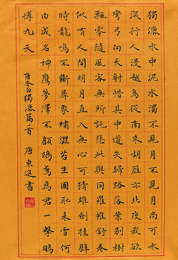 獨漉水中泥水濁不見月不見月尚可水
深行人沒越鳥從南來胡鷹亦北渡我欲
彎弓向天射惜其中道失歸路落葉別樹
飄零隨風客無所託悲與此同羅帷舒卷
似有人開明月直入無心可猜雄劍挂壁
時龍鳴不斷犀象繡澀苔生國恥未雪何
由成名神鷹夢澤不顧鴟鳶為君一擊鵬
摶九天
李白獨漉篇一首 書